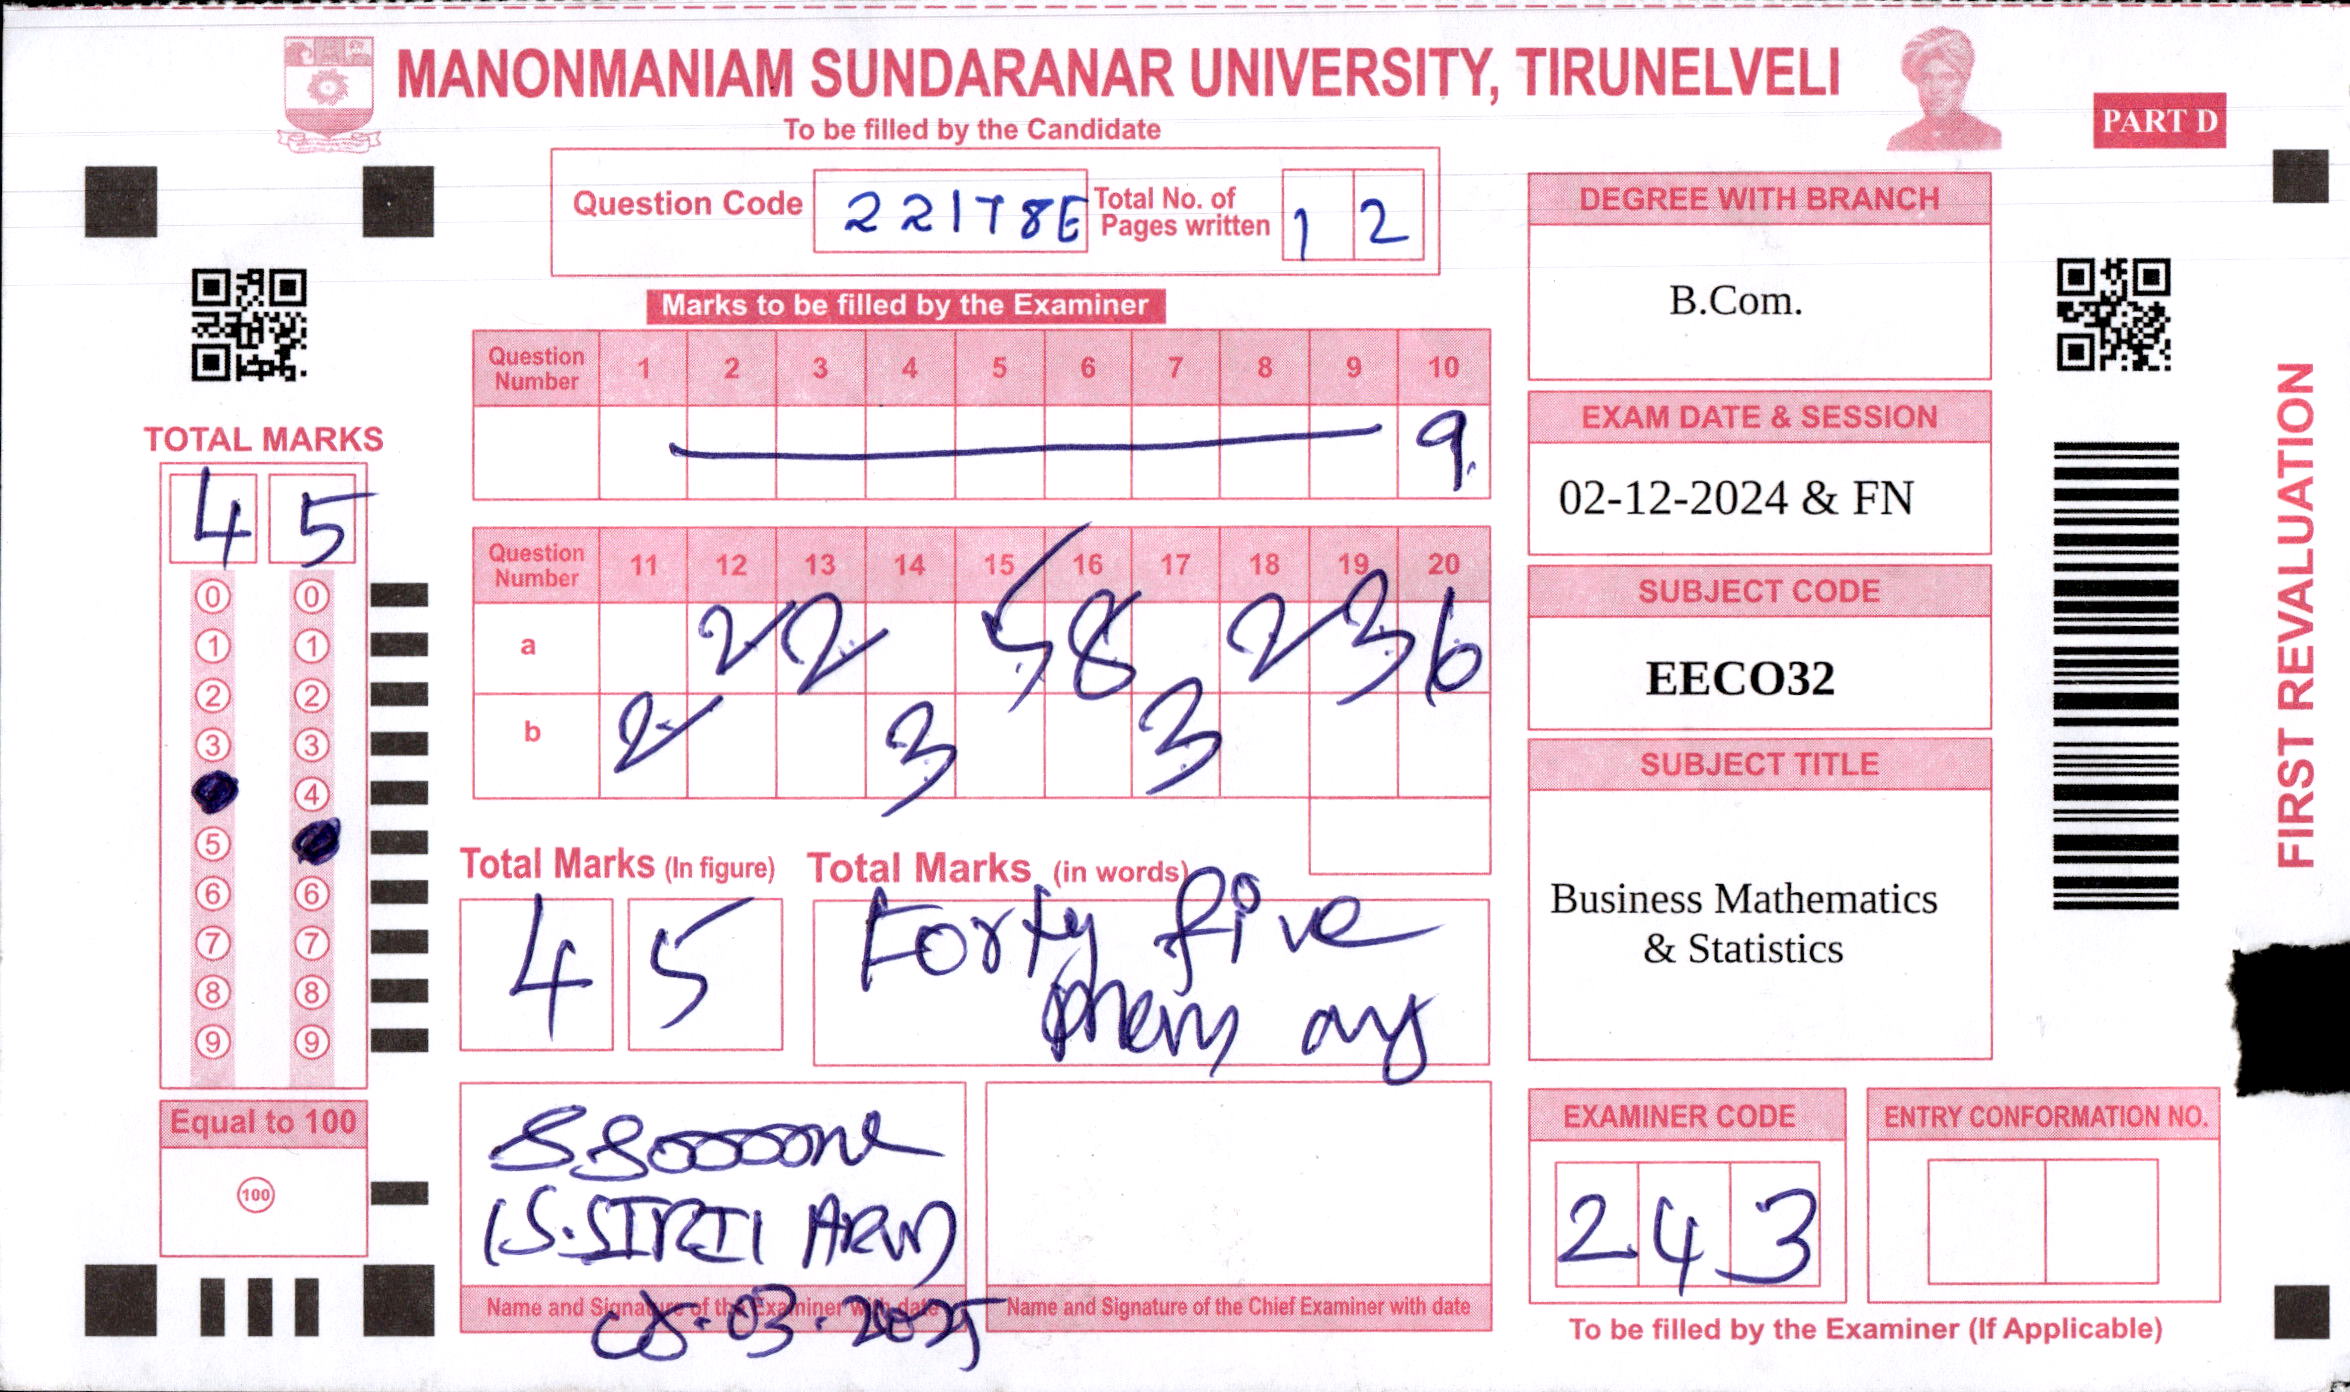 MANONMANIAM SUNDARANAR UNIVERSITY, TIRUNELVELI
To be filled by the Candidate
PART D
Question Code 22178E Total No. of Pages written 1 2
Marks to be filled by the Examiner
Question Number 1 2 3 4 5 6 7 8 9 10
9
Question Number 11 12 13 14 15 16 17 18 19 20
a 2 2 5 8 2 3 6
b 2 3 3
TOTAL MARKS
4 5
0 0
1 1
2 2
3 3
4
5
6 6
7 7
8 8
9 9
Equal to 100
100
Total Marks (In figure) Total Marks (in words)
4 5 Forty five
only
Name and Signature of the Examiner with date
03.2025
Name and Signature of the Chief Examiner with date
DEGREE WITH BRANCH
B.Com.
EXAM DATE & SESSION
02-12-2024 & FN
SUBJECT CODE
EECO32
SUBJECT TITLE
Business Mathematics
& Statistics
EXAMINER CODE
2 4 3
ENTRY CONFORMATION NO.
To be filled by the Examiner (If Applicable)
FIRST REVALUATION